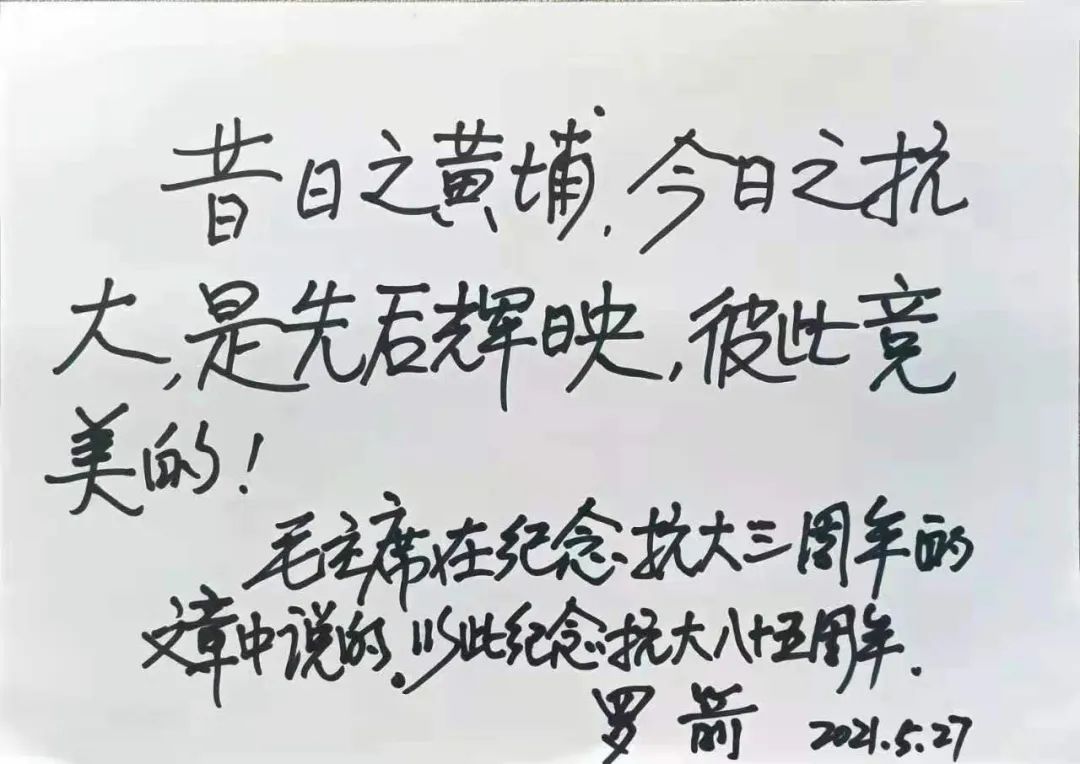 昔日之黄埔,今日之抗
大,是先后辉映,彼此竞
美的!
毛主席在纪念抗大三周年的
文章中说的.以此纪念抗大八十五周年.
罗箭 2021.5.27